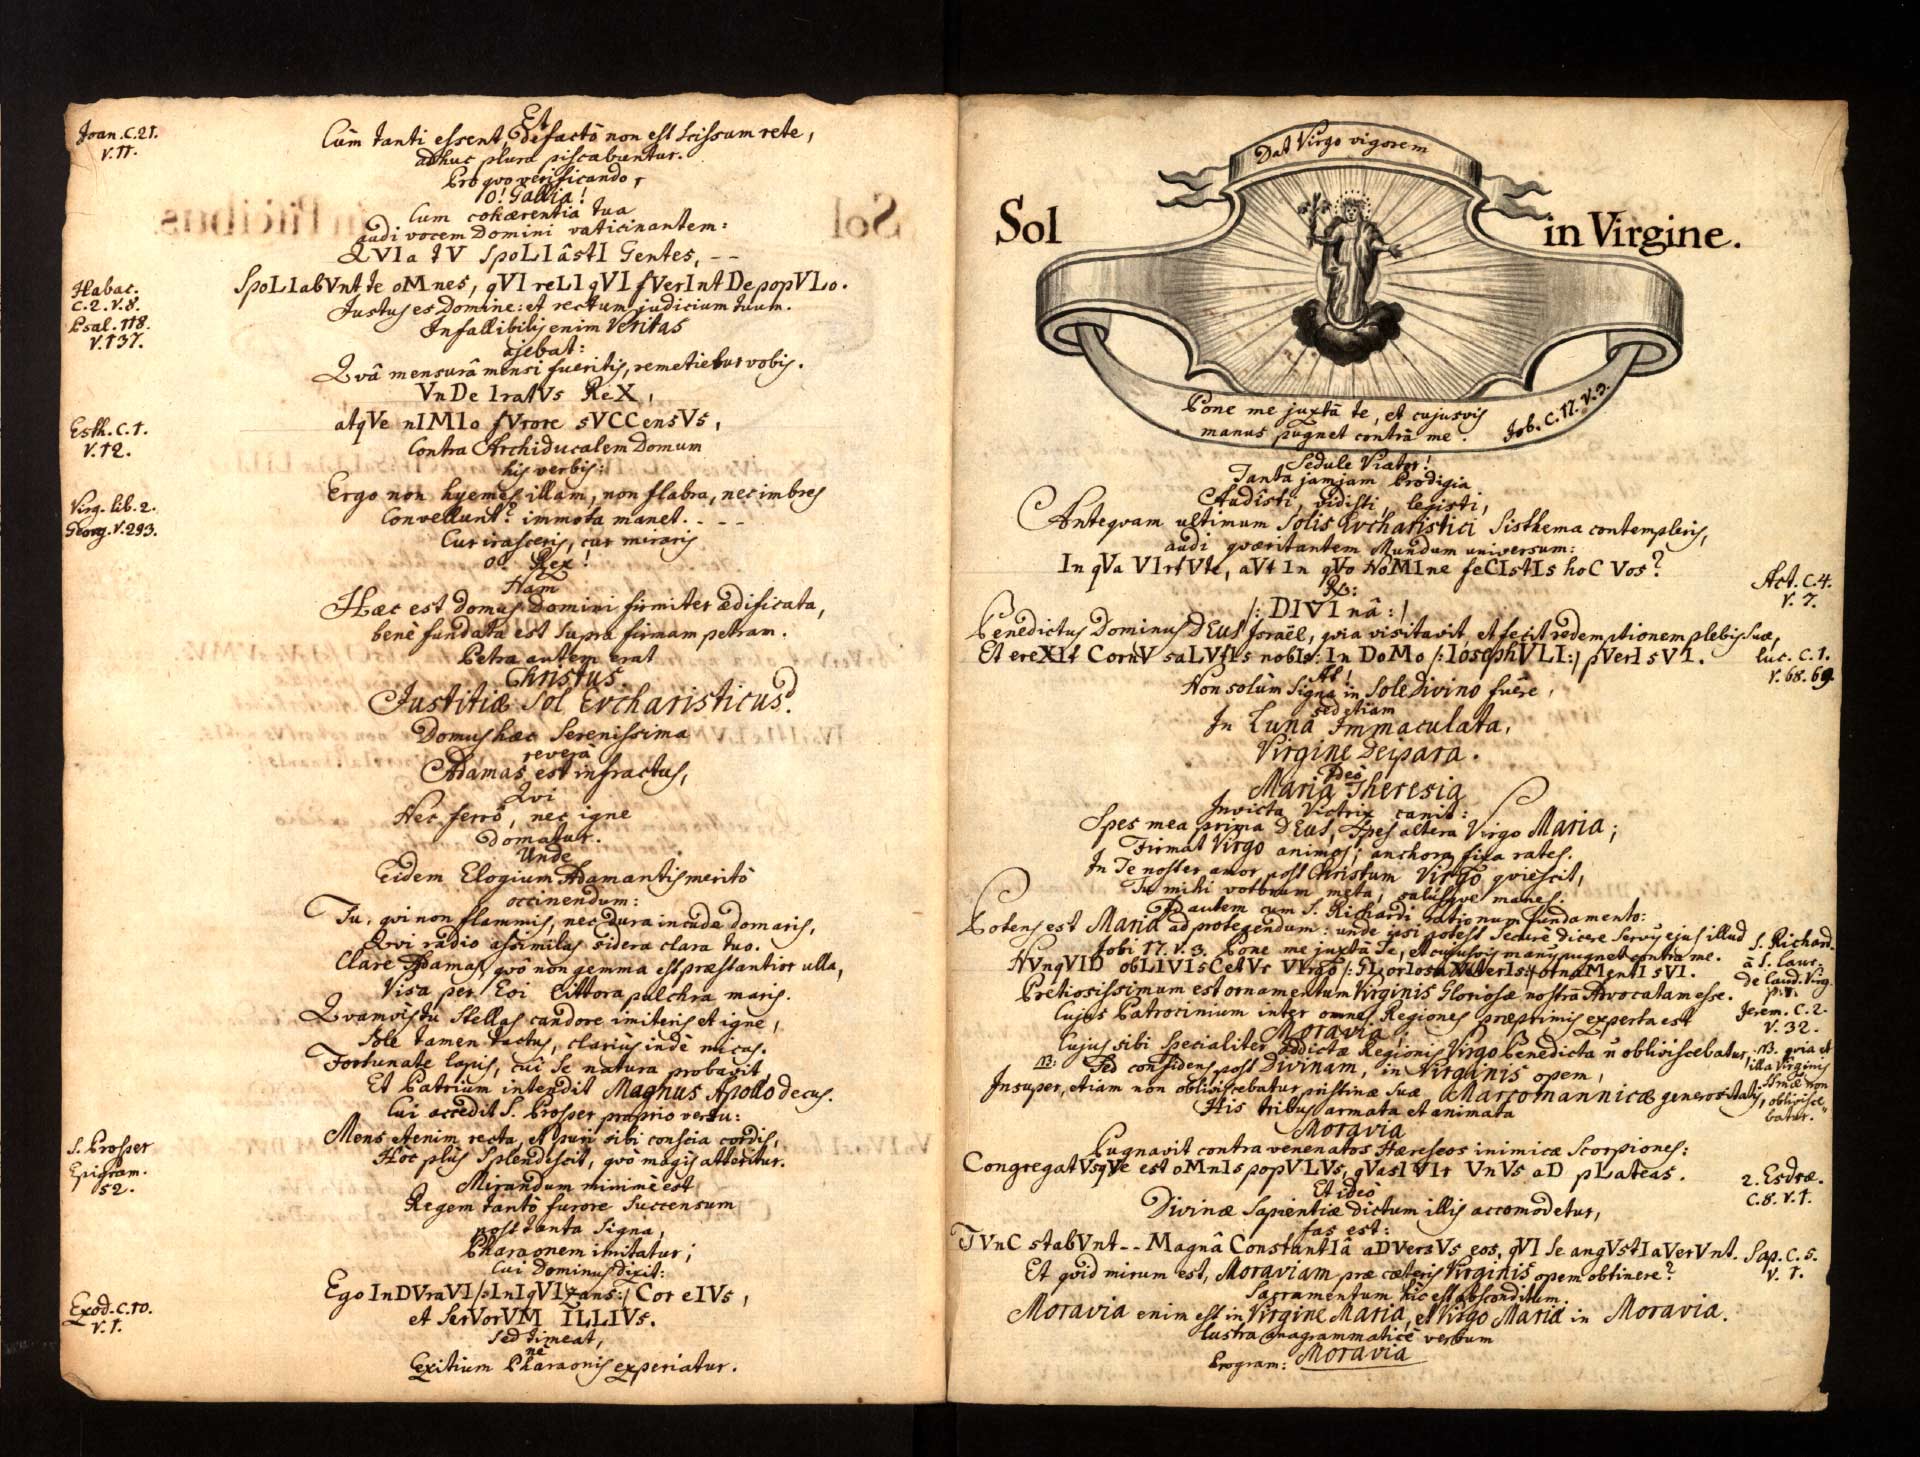 Joan. C. 21.
V. 11.
Et
Cùm tanti essent, de factò non est scissum rete,
adhuc plura piscabuntur.
Pro qvo verificando,
O! Gallia!
Cum cohærentia tua
audi vocem Domini vaticinantem:
QVIa tV SpoLIâstI Gentes, --
Habac.
C. 2. V. 8.
SpoLIabVnt te oMnes, qVI reLIqVI fVerInt De popVLo.
Psal. 118.
V. 137.
Justus es Domine: et rectum judicium tuum.
Infallibilis enim Veritas
ajebat:
Qvâ mensurâ mensi fueritis, remetietur vobis.
VnDe IratVs ReX,
Esth. C. 1.
V. 12.
atqVe nIMIo fVrore sVCCensVs,
Contra Archiducalem Domum
his verbis:
Virg. lib. 2.
Georg. V. 293.
Ergo non hyemes illam, non flabra, nec imbres
Convellunt? immota manet. - - -
Cur irasceris, cur miraris
O! Rex!
Nam
Hæc est Domus Domini firmiter ædificata,
benè fundata est supra firmam petram.
Petra autem erat
Christus.
Justitiæ Sol Evcharisticus.
Domus hæc Serenissima
reverà
Adamas est infractus,
Qvi
Nec ferrô, nec igne
Domatur.
Unde
Eidem Elogium Adamantis meritò
occinendum:
Tu, qvi non flammis, nec dura incude domaris,
Qvi radio assimilas sidera clara tuo.
Clare Adamas, qvô non gemma est præstantior ulla,
Visa per Eoi littora pulchra maris.
Qvamvis tu Stellas candore imiteris et igne,
Sole tamen tactus, clarius indè micas.
Fortunate lapis, cui se natura probavit
Et Patrium intendit Magnus Apollo decus.
Cui accedit S. Prosper proprio versu:
S. Prosper
Epigram.
52.
Mens etenim recta, et puri sibi conscia cordis,
Hoc plùs Splendescit, qvò magis atteritur.
Mirandum minimè est
Regem tantò furore Succensum
post tanta Signa,
Pharaonem imitatur;
Cui Dominus dixit:
Exod. C. 10.
V. 1.
Ego InDVraVI /: InIqVIzans :/ Cor eIVs,
et SerVorVM ILLIVs.
Sed timeat,
nè
Exitium Pharaonis experiatur.
Dat Virgo vigorem
Sol in Virgine.
Pone me juxtà te, et cujusvis
manus pugnet contrà me. Job. C. 17. V. 3.
Sedule Viator!
Tanta jamjam Prodigia
Audîsti, vidisti, legisti,
Anteqvam ultimum Solis Evcharistici Sisthema contempleris,
audi qværitantem Mundum universum:
In qVa VIrtVte, aVt In qVo NoMIne feCIstIs hoC Vos?
Act. C. 4.
V. 7.
Rx:
/: DIVInâ :/
Benedictus Dominus DEUS Israël, qvia visitavit, et fecit redemptionem plebis suæ,
Et ereXIt CornV saLVtIs nobIs: In DoMo /: IosephVLI :/ pVerI sVI.
luc. C. 1.
V. 68. 69.
At!
Non solùm Signa in Sole Divino fuêre,
sed etiam
In Luna Immaculata,
Virgine Deipara.
Ideò
Maria Theresia
Invicta Victrix canit:
Spes mea prima DEUS, Spes altera Virgo Maria;
Firmat Virgo animos; anchora fixa rates.
In Te noster amor post Christum Virgo qviescit,
Tu mihi votorum meta, salusqve manes.
Id autem cum S. Richardi rationum fundamento:
Potens est Maria ad protegendum: unde ipsi potest Securè dicere Servus ejus illud
Jobi 17. V. 3. Pone me juxtà Te, et cujusvis manus pugnet contra me.
S. Richard.
à S. laur.
de laud. Virg.
HVnqVID obLIVIsCetVr VIrgo /: GLorIosa :/ ornaMentI sVI.
Pretiosissimum est ornamentum Virginis Gloriosæ nostrâ Advocatam esse.
Jerem. C. 2.
V. 32.
Cujus Patrocinium inter omnes Regiones præprimis experta est
Moravia;
Cujus sibi Specialiter addictæ Regionis Virgo Benedicta ñ obliviscebatur,
NB: Sed confidens post Divinam, in Virginis opem,
NB. qvia et
illa Virginis
Almæ non
oblivisce-
batur."
Insuper, etiam non obliviscebatur pristinæ suæ Marcomannicæ generositatis,
His tribus armata et animata
Moravia
Pugnavit contra venenatos Hæreseos inimicæ Scorpiones:
CongregatVsqVe est oMnIs popVLVs, qVasI VIr VnVs aD pLateas.
2. Esdræ.
C. 8. V. 1.
Et ideò
Divinæ Sapientiæ dictum illis accomodetur,
fas est:
TVnC stabVnt -- Magnâ ConstantIâ aDVersVs eos, qVI se angVstIaVerVnt.
Sap. C. 5.
V. 1.
Et qvid mirum est, Moraviam præ cæteris Virginis opem obtinere?
Sacramentum hìc est absconditum.
Moravia enim est in Virgine Maria, et Virgo Maria in Moravia.
lustra anagrammaticè verbum
Program: Moravia